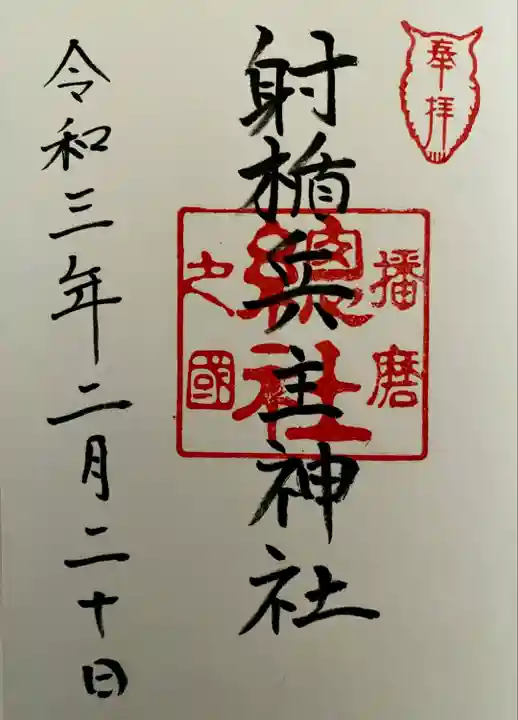 奉拝
射楯兵主神社
播磨
總社
之國
令和三年二月二十日